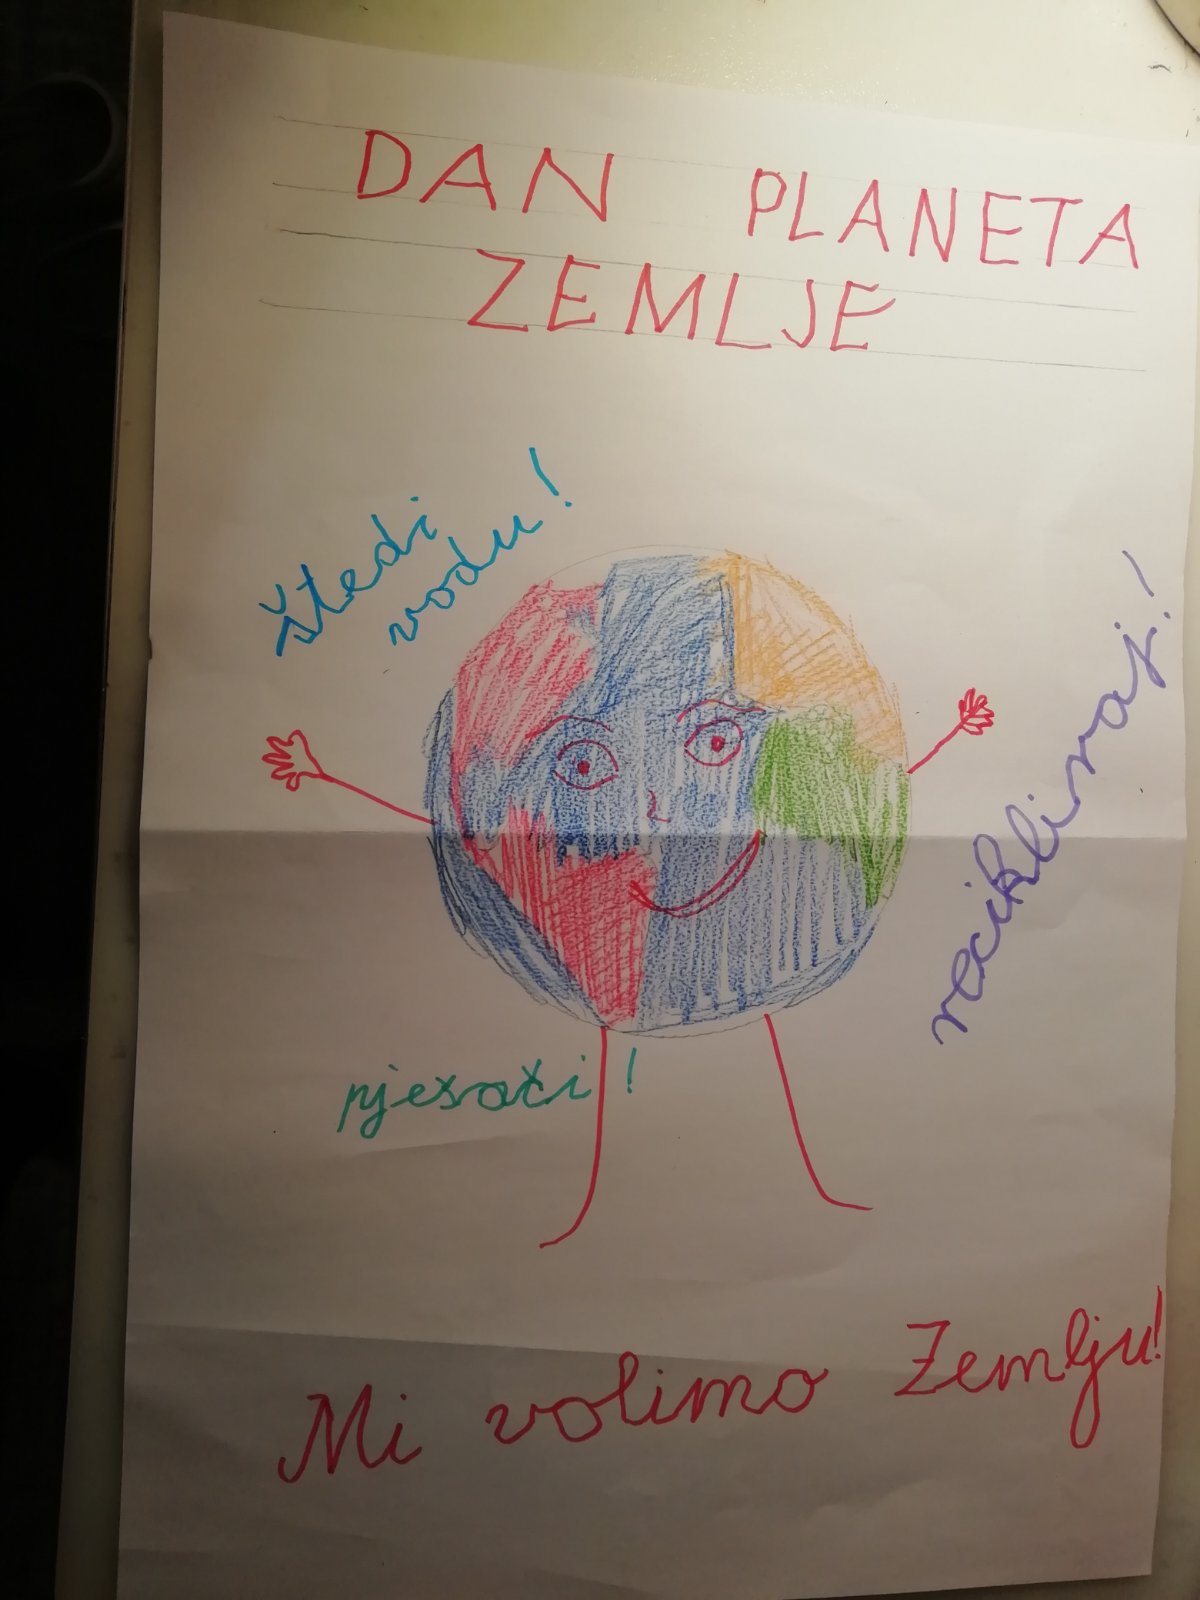 DAN PLANETA
ZEMLJE
štedi
vodu!
recikliraj!
pješači!
Mi volimo Zemlju!